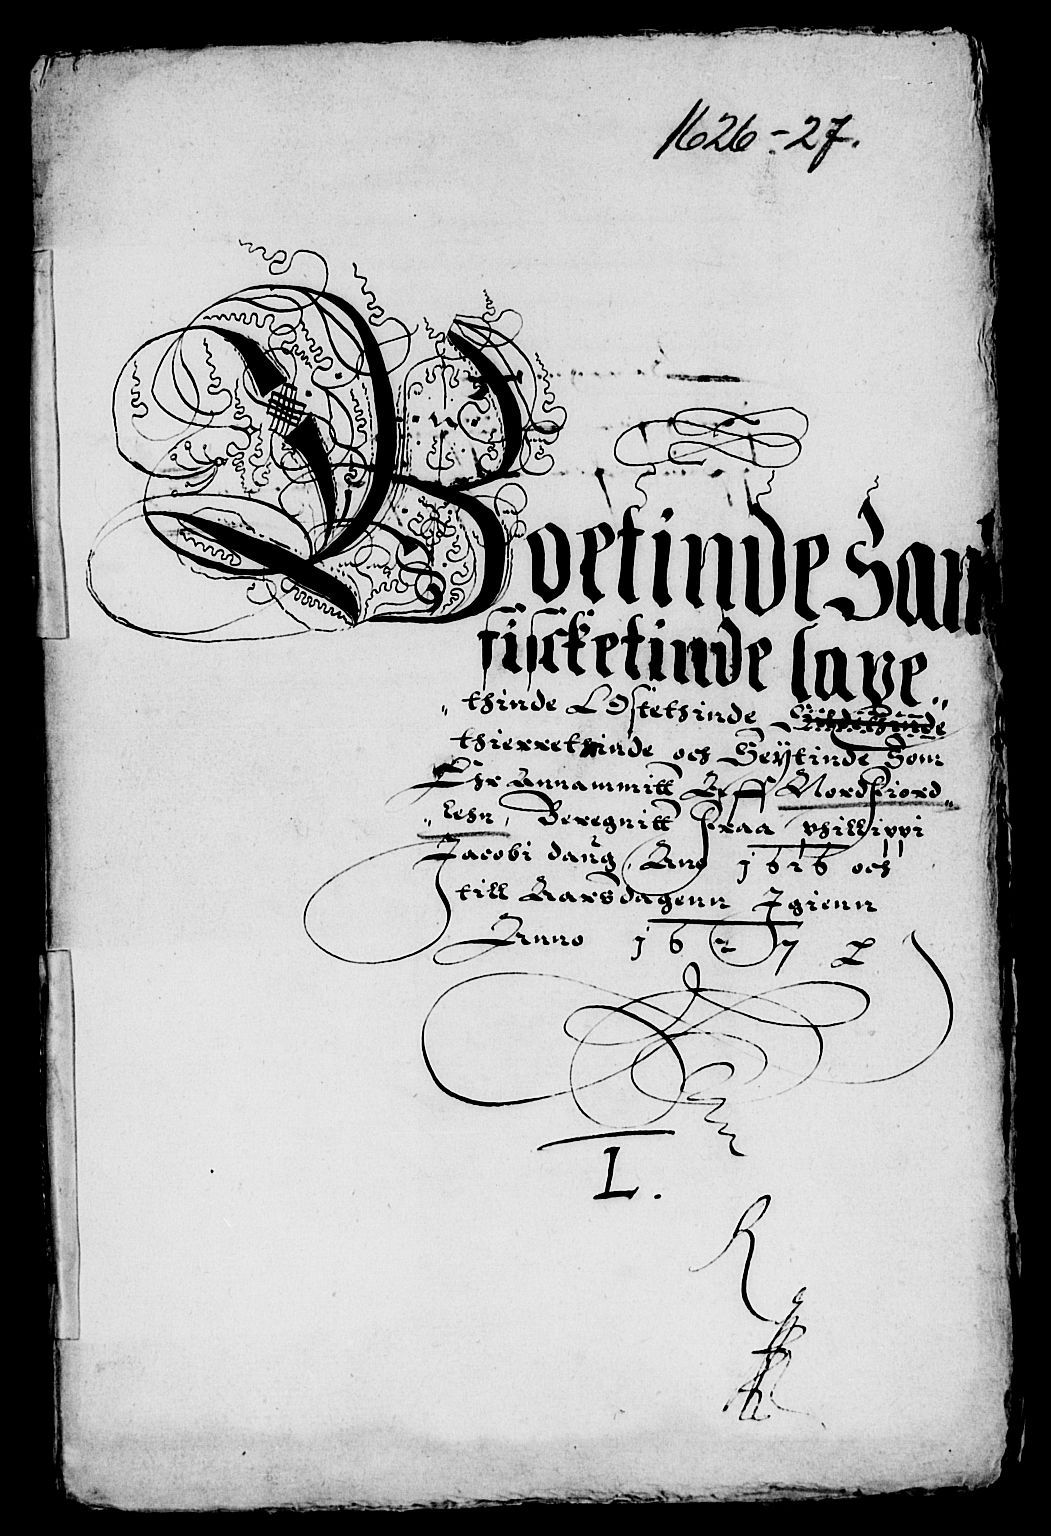 1626-27.
Koetinde Sam
fiscketinde lave„
„thinde LOstethinde
thierrethinde och Seÿtinde Som
Ehr Annammitt Aff Nordfiord„
„lehn, Beregnitt fraa phillippi
Jacobi daug Ano 1626 och
till Aarsdagenn Igienn
Anno 1627
L.